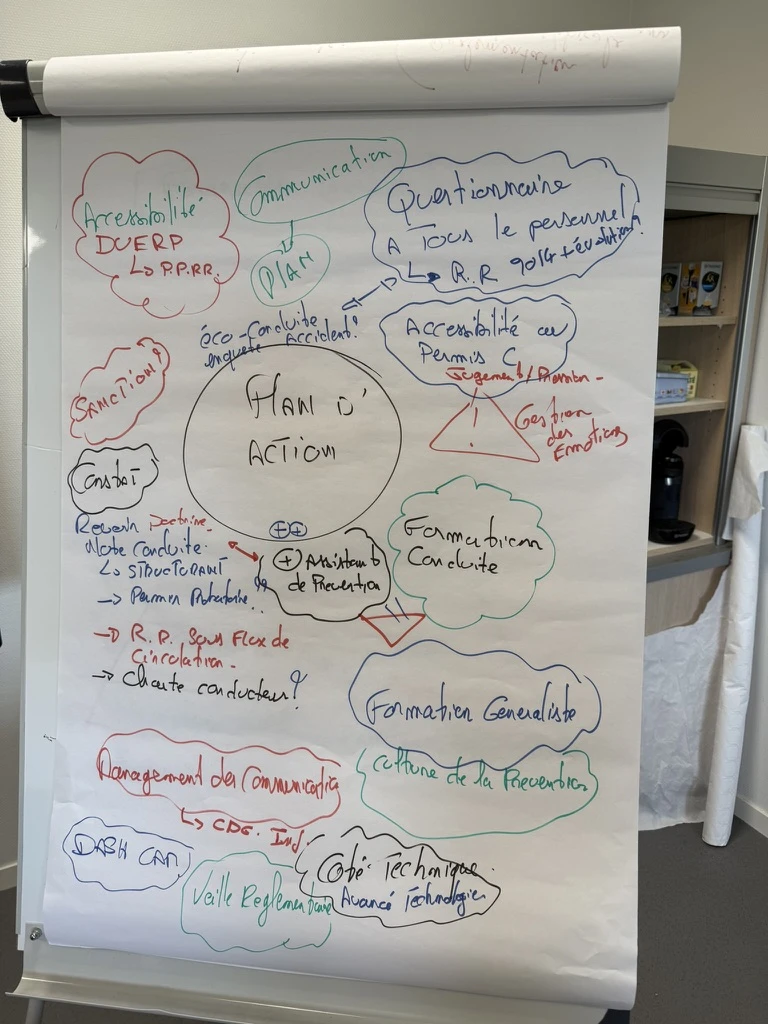 Communication
Accessibilité
DUERP
↳ P.P.RR.
PLAN
Questionnaire
A Tous le personnel
↳ R.R 2014 + évolution?
éco-conduite
enquete Accident?
Accessibilité au
Permis C
Jugement/Pression -
! Gestion
des
Emotions
SANCTION?
PLAN D'
ACTION
Constat
Revoir Doctrine.
Note conduite.
↳ STRUCTURANT
→ Permis Probatoire.
→ R.P. Sous Flux de
Circulation -
→ Charte conducteur?
++
+ Assistant
de Prévention
Formation
Conduite
Formation Generaliste
Culture de la Prévention
Management des Communication
↳ CDG. Inf.
DASH CAM
Veille Reglementaire
Coté Technique.
Avancé Technologie